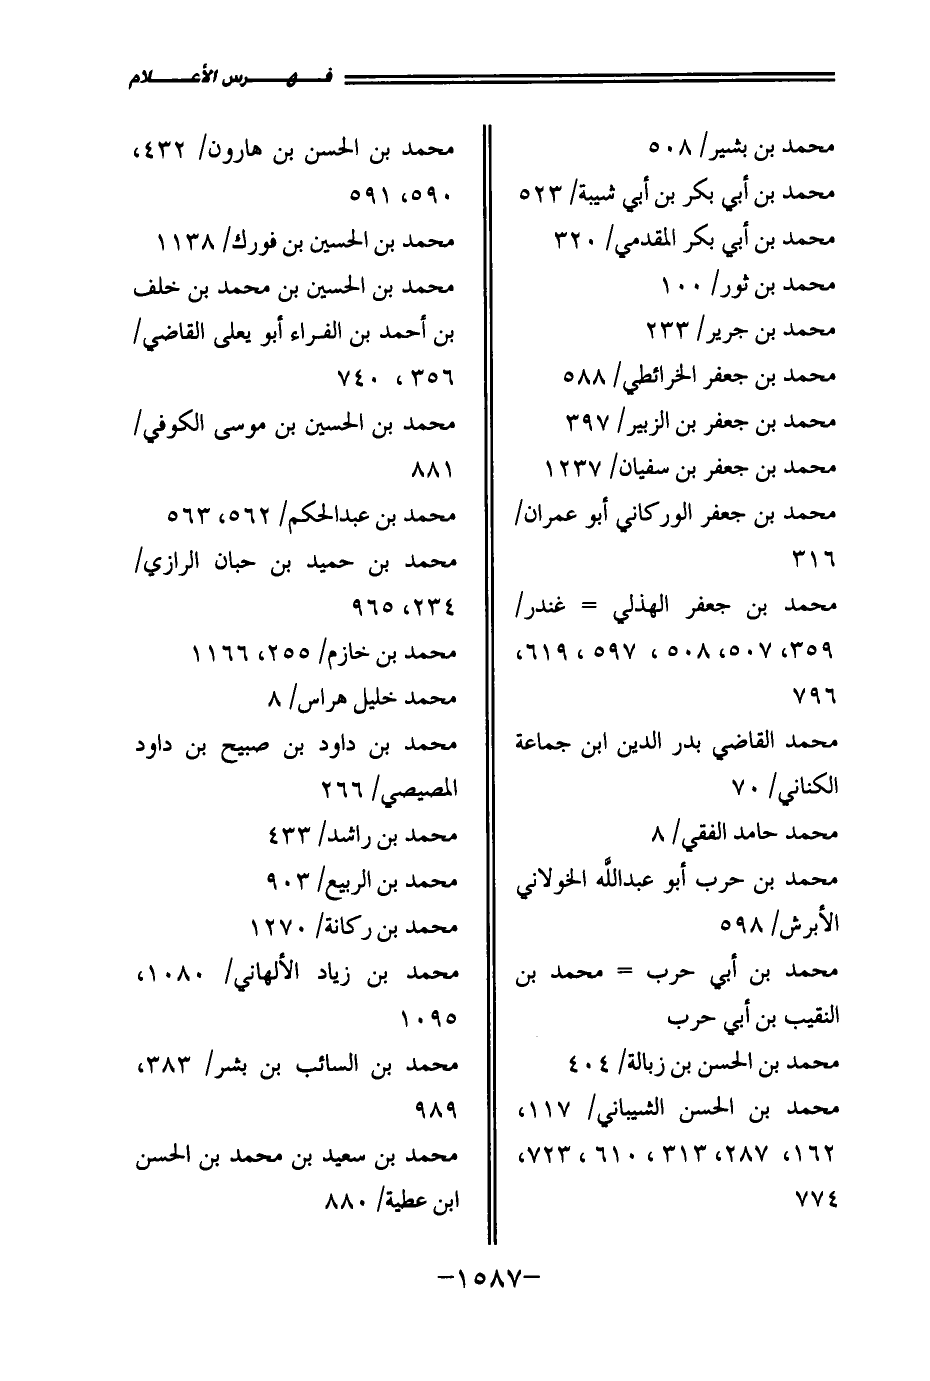 فهرس الأعلام
محمد بن بشير/ ٥٠٨
محمد بن أبي بكر بن أبي شيبة/ ٥٢٣
محمد بن أبي بكر المقدمي/ ٣٢٠
محمد بن ثور/ ١٠٠
محمد بن جرير/ ٢٣٣
محمد بن جعفر الخرائطي/ ٥٨٨
محمد بن جعفر بن الزبير/ ٣٩٧
محمد بن جعفر بن سفيان/ ١٢٣٧
محمد بن جعفر الوركاني أبو عمران/
٣١٦
محمد بن جعفر الهذلي = غندر/
٣٥٩، ٥٠٧، ٥٠٨، ٥٩٧، ٦١٩،
٧٩٦
محمد القاضي بدر الدين ابن جماعة
الكناني/ ٧٠
محمد حامد الفقي/ ٨
محمد بن حرب أبو عبدالله الخولاني
الأبرش/ ٥٩٨
محمد بن أبي حرب = محمد بن
النقيب بن أبي حرب
محمد بن الحسن بن زبالة/ ٤٠٤
محمد بن الحسن الشيباني/ ١١٧،
١٦٢، ٢٨٧، ٣١٣، ٦١٠، ٧٢٣،
٧٧٤
محمد بن الحسن بن هارون/ ٤٣٢،
٥٩٠، ٥٩١
محمد بن الحسين بن فورك/ ١١٣٨
محمد بن الحسين بن محمد بن خلف
بن أحمد بن الفراء أبو يعلى القاضي/
٣٥٦، ٧٤٠
محمد بن الحسين بن موسى الكوفي/
٨٨١
محمد بن عبدالحكم/ ٥٦٢، ٥٦٣
محمد بن حميد بن حبان الرازي/
٢٣٤، ٩٦٥
محمد بن خازم/ ٢٥٥، ١١٦٦
محمد خليل هراس/ ٨
محمد بن داود بن صبيح بن داود
المصيصي/ ٢٦٦
محمد بن راشد/ ٤٣٣
محمد بن الربيع/ ٩٠٣
محمد بن ركانة/ ١٢٧٠
محمد بن زياد الألهاني/ ١٠٨٠،
١٠٩٥
محمد بن السائب بن بشر/ ٣٨٣،
٩٨٩
محمد بن سعيد بن محمد بن الحسن
ابن عطية/ ٨٨٠
-١٥٨٧-